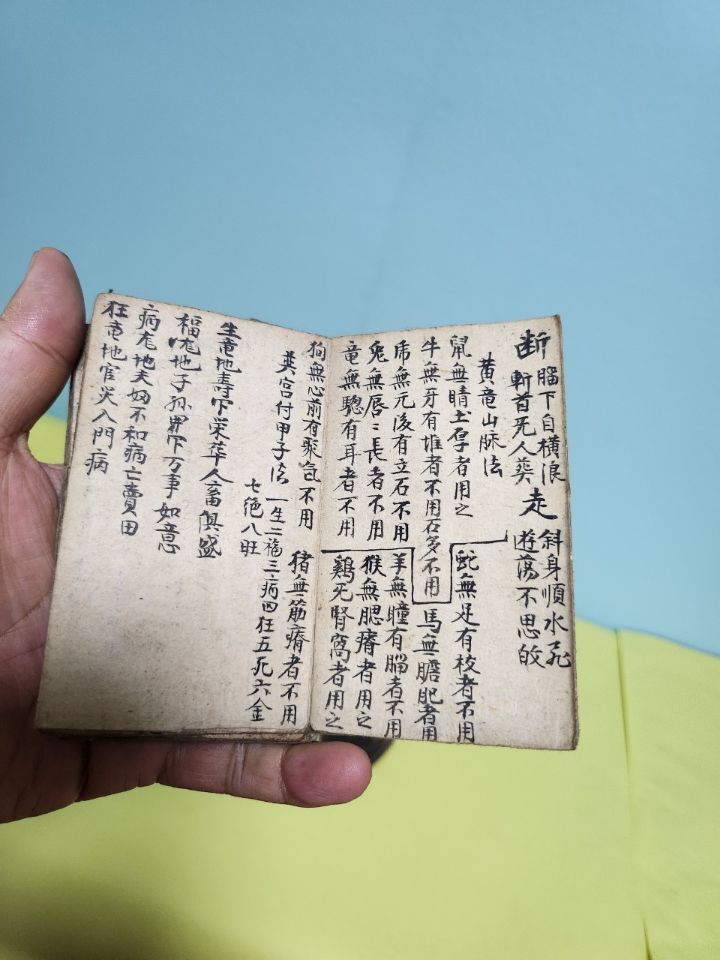 断 腦下白横浪
斬首死人葬
走 斜身順水飛
遊蕩不思的
黄竜山脉法
鼠無睛土孚者用之
牛無牙有堆者不用在多不用
虎無元後有立石不用
兔無唇〻長者不用
竜無聰有耳者不用
蛇無足有枝者不用
馬無膽肥者用
羊無瞳有腦者不用
猴無腮瘠者用之
鷄死腎窩者用之
狗無心前有聚氣不用
猪無筋瘠者不用
英宫付甲子法 一生二福三病四狂五死六金
七绝八旺
生竜地壽下栄華人畜俱盛
福竜地子孙下万事如意
病竜地夫妇不和病亡賣田
狂竜地官災入門病